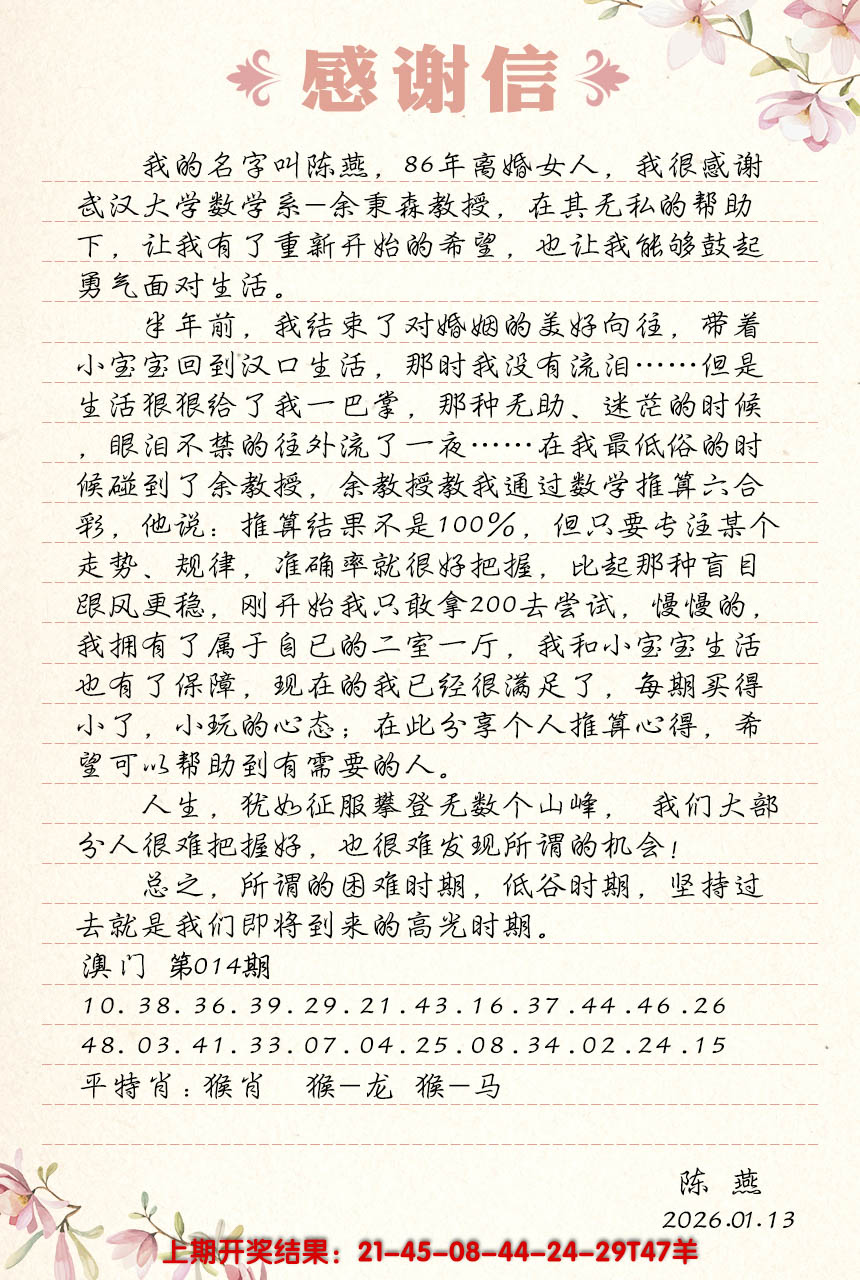 感谢信
我的名字叫陈燕，86年离婚女人，我很感谢
武汉大学数学系-余秉森教授，在其无私的帮助
下，让我有了重新开始的希望，也让我能够鼓起
勇气面对生活。
半年前，我结束了对婚姻的美好向往，带着
小宝宝回到汉口生活，那时我没有流泪……但是
生活狠狠给了我一巴掌，那种无助、迷茫的时候
，眼泪不禁的往外流了一夜……在我最低俗的时
候碰到了余教授，余教授教我通过数学推算六合
彩，他说：推算结果不是100%，但只要专注某个
走势、规律，准确率就很好把握，比起那种盲目
跟风更稳，刚开始我只敢拿200去尝试，慢慢的，
我拥有了属于自已的二室一厅，我和小宝宝生活
也有了保障，现在的我已经很满足了，每期买得
小了，小玩的心态；在此分享个人推算心得，希
望可以帮助到有需要的人。
人生，犹如征服攀登无数个山峰， 我们大部
分人很难把握好，也很难发现所谓的机会！
总之，所谓的困难时期，低谷时期，坚持过
去就是我们即将到来的高光时期。
澳门 第014期
10.38.36.39.29.21.43.16.37.44.46.26
48.03.41.33.07.04.25.08.34.02.24.15
平特肖：猴肖 猴-龙 猴-马
陈 燕
2026.01.13
上期开奖结果：21-45-08-44-24-29T47羊